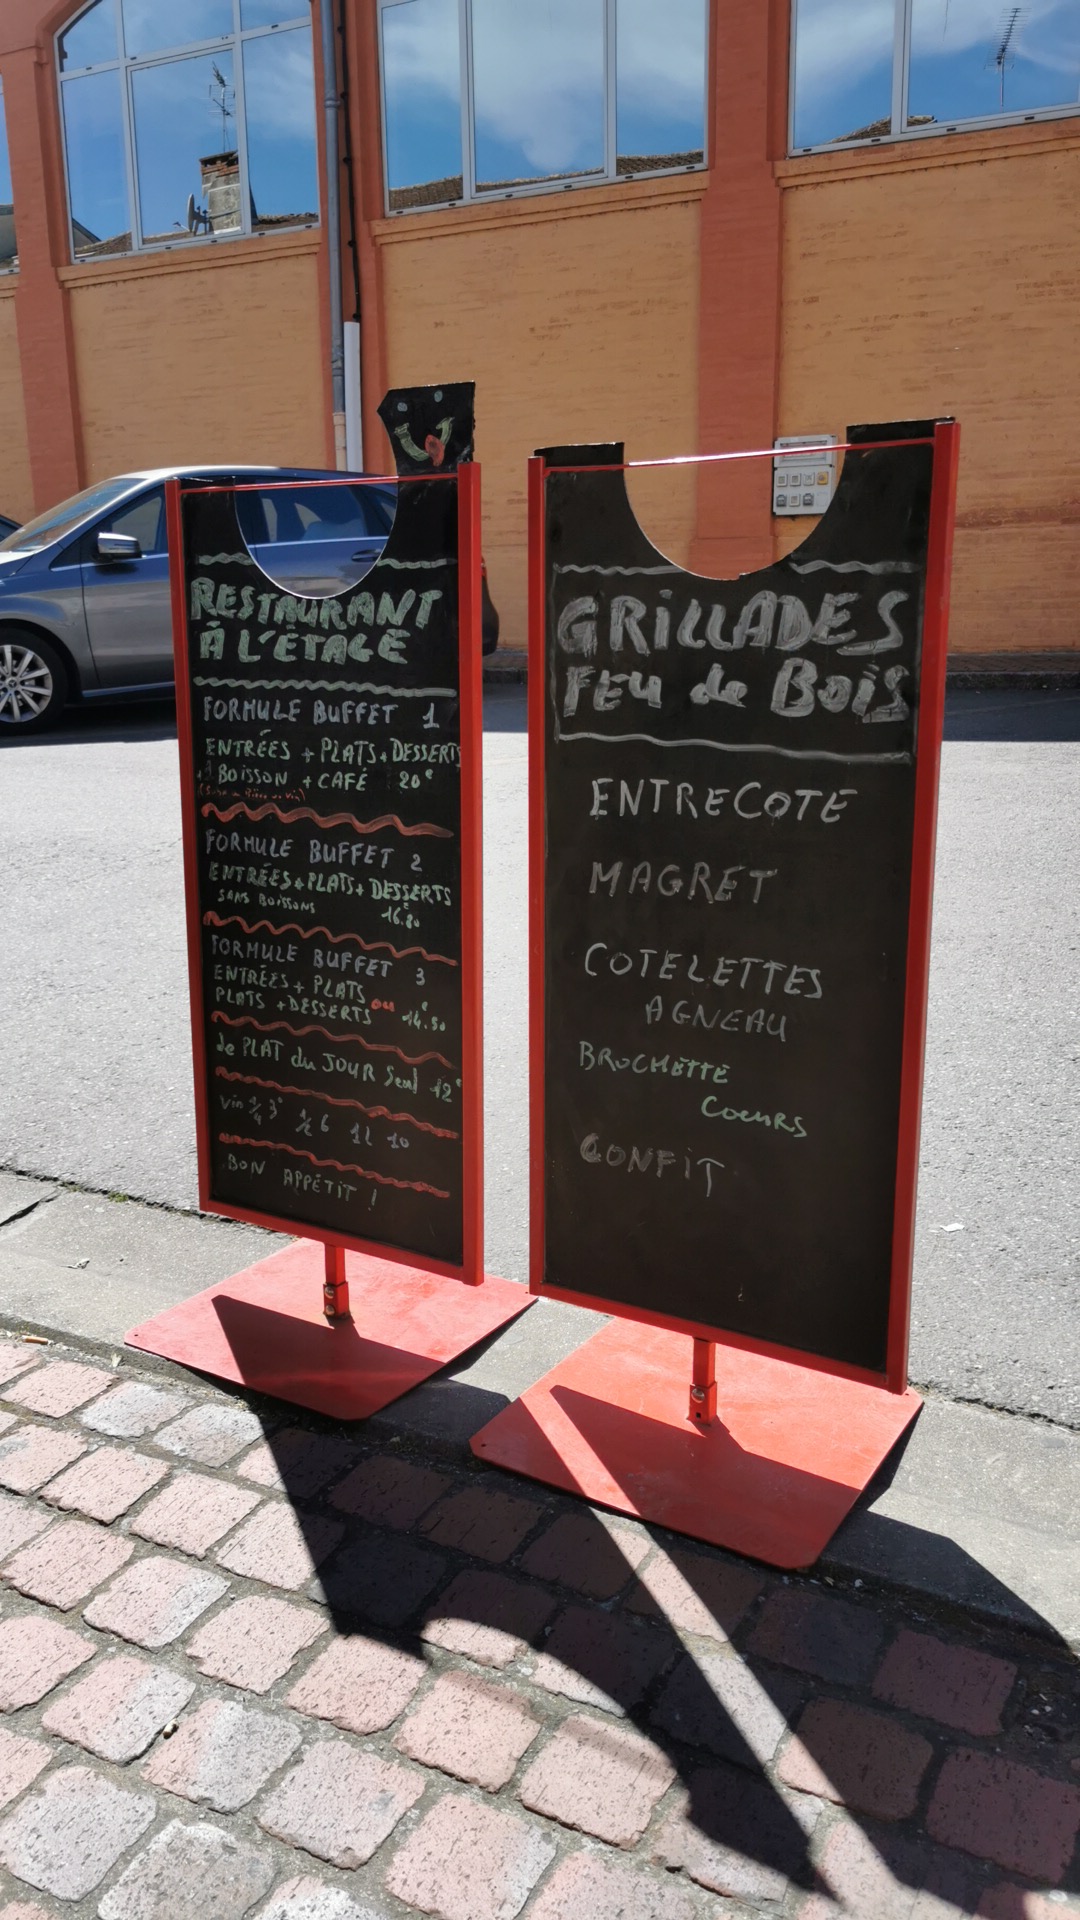 RESTAURANT
À L'ÉTAGE
FORMULE BUFFET 1
ENTRÉES + PLATS + DESSERTS
+ 1 BOISSON + CAFÉ 20€
FORMULE BUFFET 2
ENTRÉES + PLATS + DESSERTS
SANS BOISSONS 16.80
FORMULE BUFFET 3
ENTRÉES + PLATS ou
PLATS + DESSERTS 14.50
le PLAT du JOUR Seul 12€
Vin 1/4 3€ 1/2 6 1L 10
BON APPÉTIT !
GRiLLADES
FEU de BoiS
ENTRECOTE
MAGRET
COTELETTES
AGNEAU
BROCHETTE
CoeuRS
CONFiT